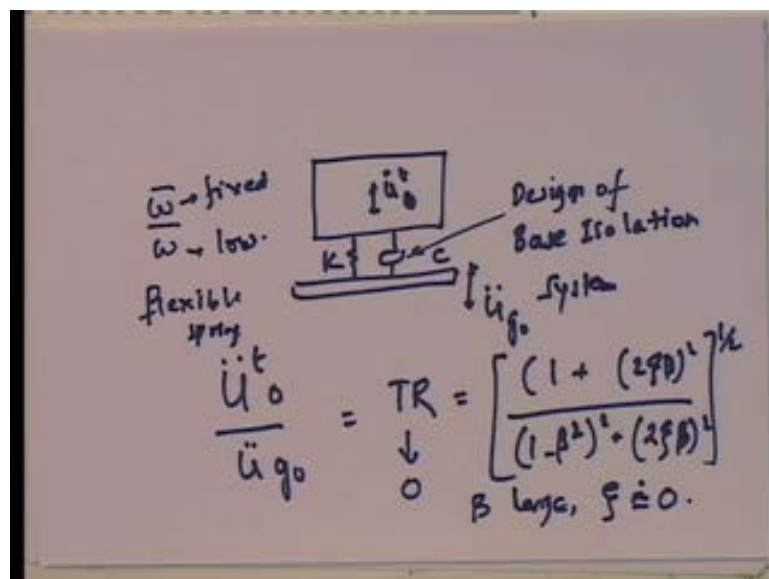 ω̄ → fixed
ω → low.
flexible
spring
ü₀ᵗ
K
C
Design of
Base Isolation
System
ü_g₀
ü₀ᵗ / ü_g₀ = TR = [(1 + (2ξβ)² / (1-β²)² + (2ξβ)²]^{1/2}
↓
0
β large, ξ ≐ 0.